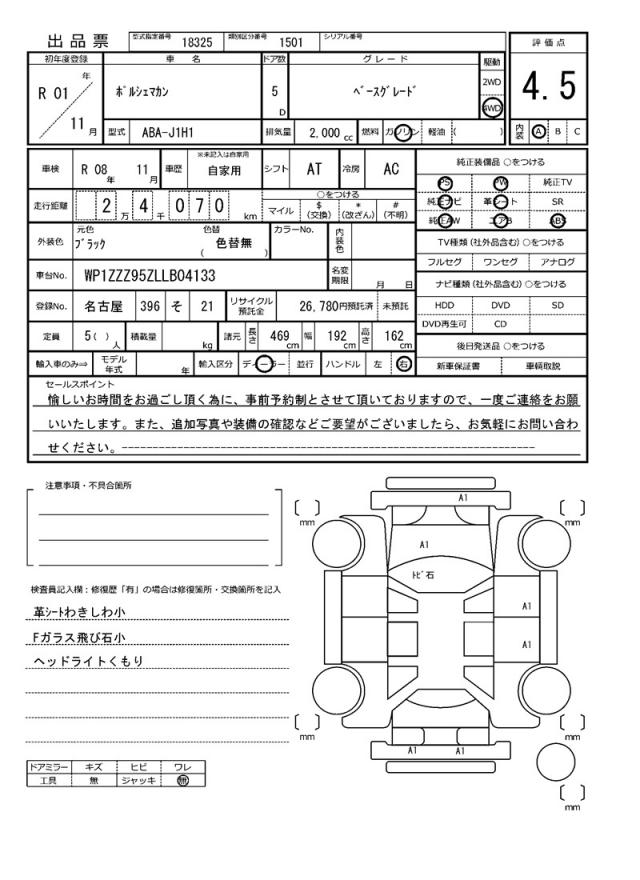 出品票 型式指定番号 18325 類別区分番号 1501 シリアル番号
評価点
4.5
内装 A B C
初年度登録 車名 ドア数 グレード 駆動
R 01 年 11 月 ポルシェマカン 5 D ベースグレード 2WD 4WD
型式 ABA-J1H1 排気量 2,000 cc 燃料 ガソリン 軽油 ( )
車検 R 08 年 11 月 車歴 ※未記入は自家用 自家用 シフト AT 冷房 AC
走行距離 2 万 4 千 0 7 0 km ○をつける
マイル $ (交換) * (改ざん) # (不明)
外装色 元色 ブラック 色替 ( 色替無 ) カラーNo. 内装色
車台No. WP1ZZZ95ZLLB04133 名変期限 月 日
登録No. 名古屋 396 そ 21 リサイクル預託金 26,780円預託済 未預託
定員 5( ) 人 積載量 kg 諸元 長さ 469 cm 幅 192 cm 高さ 162 cm
輸入車のみ⇨ モデル年式 年 輸入区分 ディーラー 並行 ハンドル 左 右
純正装備品 ○をつける
PS PW 純正TV
純正ナビ 革シート SR
純正AW エアB ABS
TV種類 (社外品含む) ○をつける
フルセグ ワンセグ アナログ
ナビ種類 (社外品含む) ○をつける
HDD DVD SD
DVD再生可 CD
後日発送品 ○をつける
新車保証書 車輌取説
セールスポイント
愉しいお時間をお過ごし頂く為に、事前予約制とさせて頂いておりますので、一度ご連絡をお願
いいたします。また、追加写真や装備の確認などご要望がございましたら、お気軽にお問い合わ
せください。------------------------------------------------------------
注意事項・不具合箇所
検査員記入欄：修復歴「有」の場合は修復箇所・交換箇所を記入
革シートわきしわ小
Fガラス飛び石小
ヘッドライトくもり
ドアミラー キズ ヒビ ワレ
工具 無 ジャッキ 無
A1
[ ] mm [ ] mm
A1
トビ石
A1
A1
[ ] mm [ ] mm
A1 A1
[ ] mm